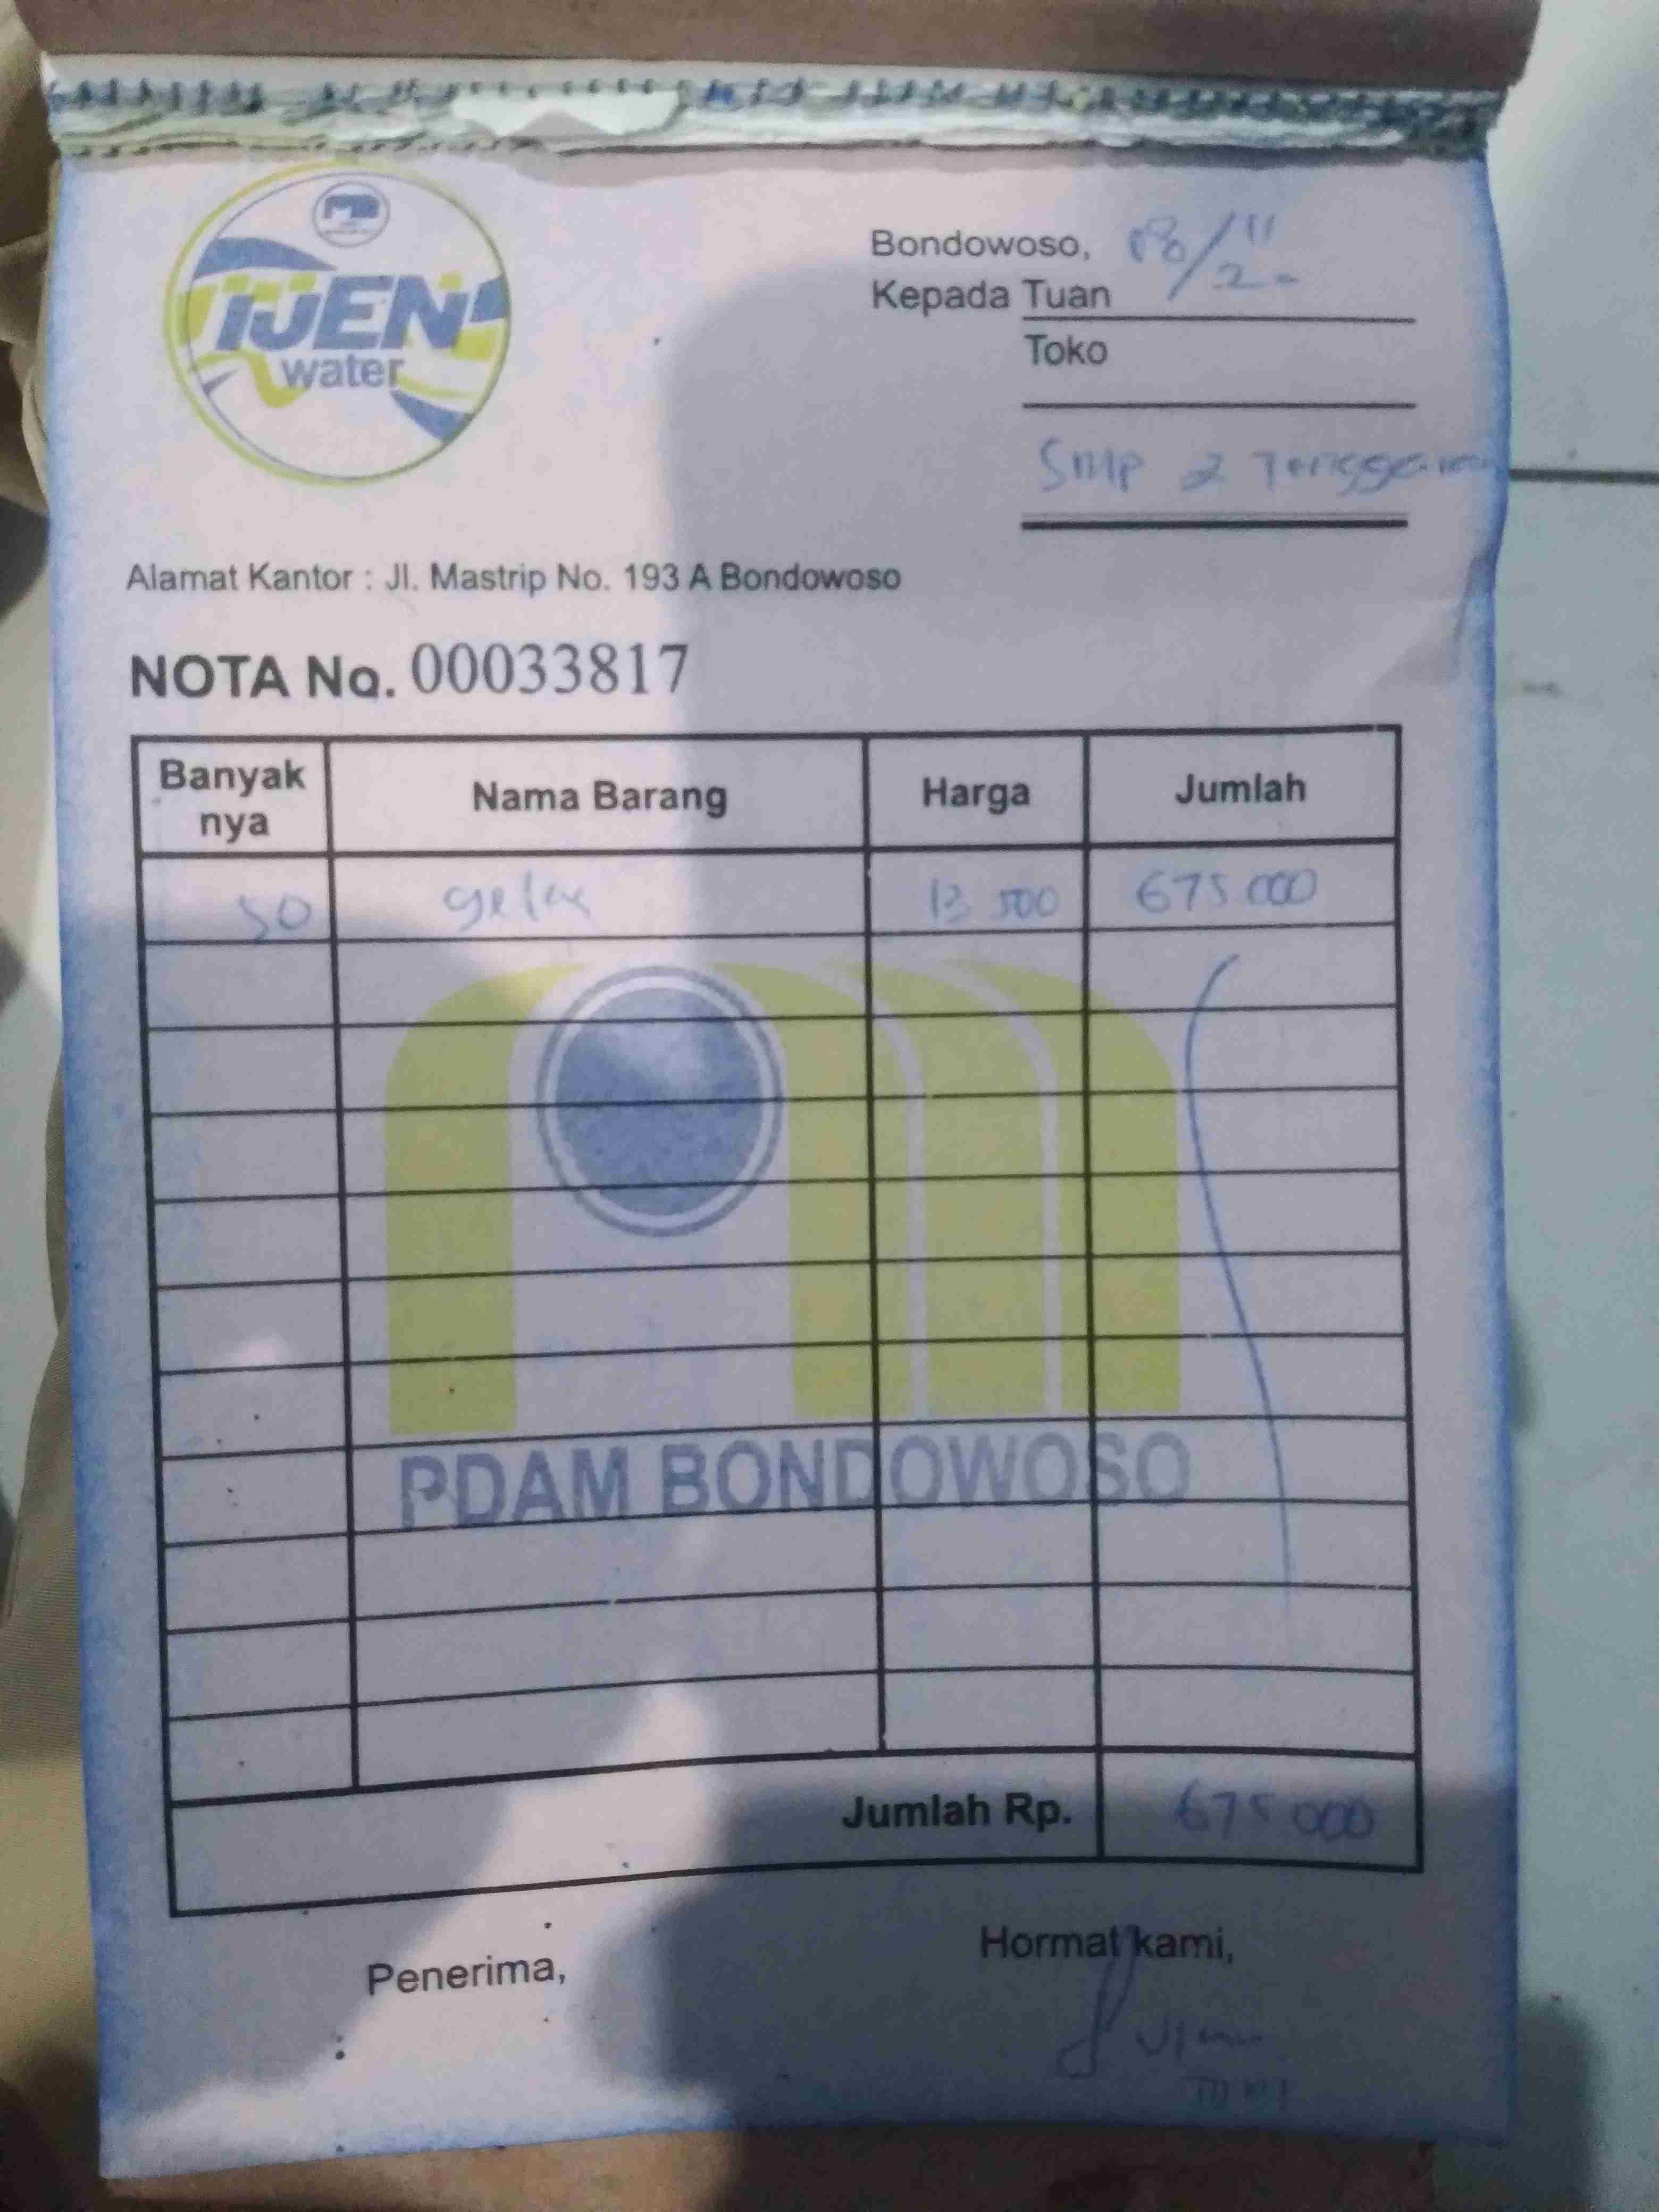 IJEN
water
Bondowoso, 18/11
20
Kepada Tuan
Toko
SMP 2 Tenggarang
Alamat Kantor : Jl. Mastrip No. 193 A Bondowoso
NOTA No. 00033817
Banyak nya Nama Barang Harga Jumlah
50 gelas 13 500 675 000
PDAM BONDOWOSO
Jumlah Rp. 675 000
Penerima, Hormat kami,